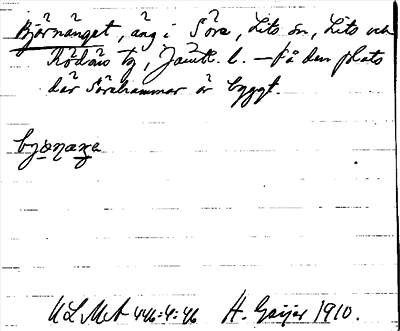 Björnänget, äng i Söre, Lits sn, Lits och
Rödöns tg, Jämtl. l. – På den plats
där Sörehammar är byggt.
ULMA 446:4:46 H. Geijer 1910.